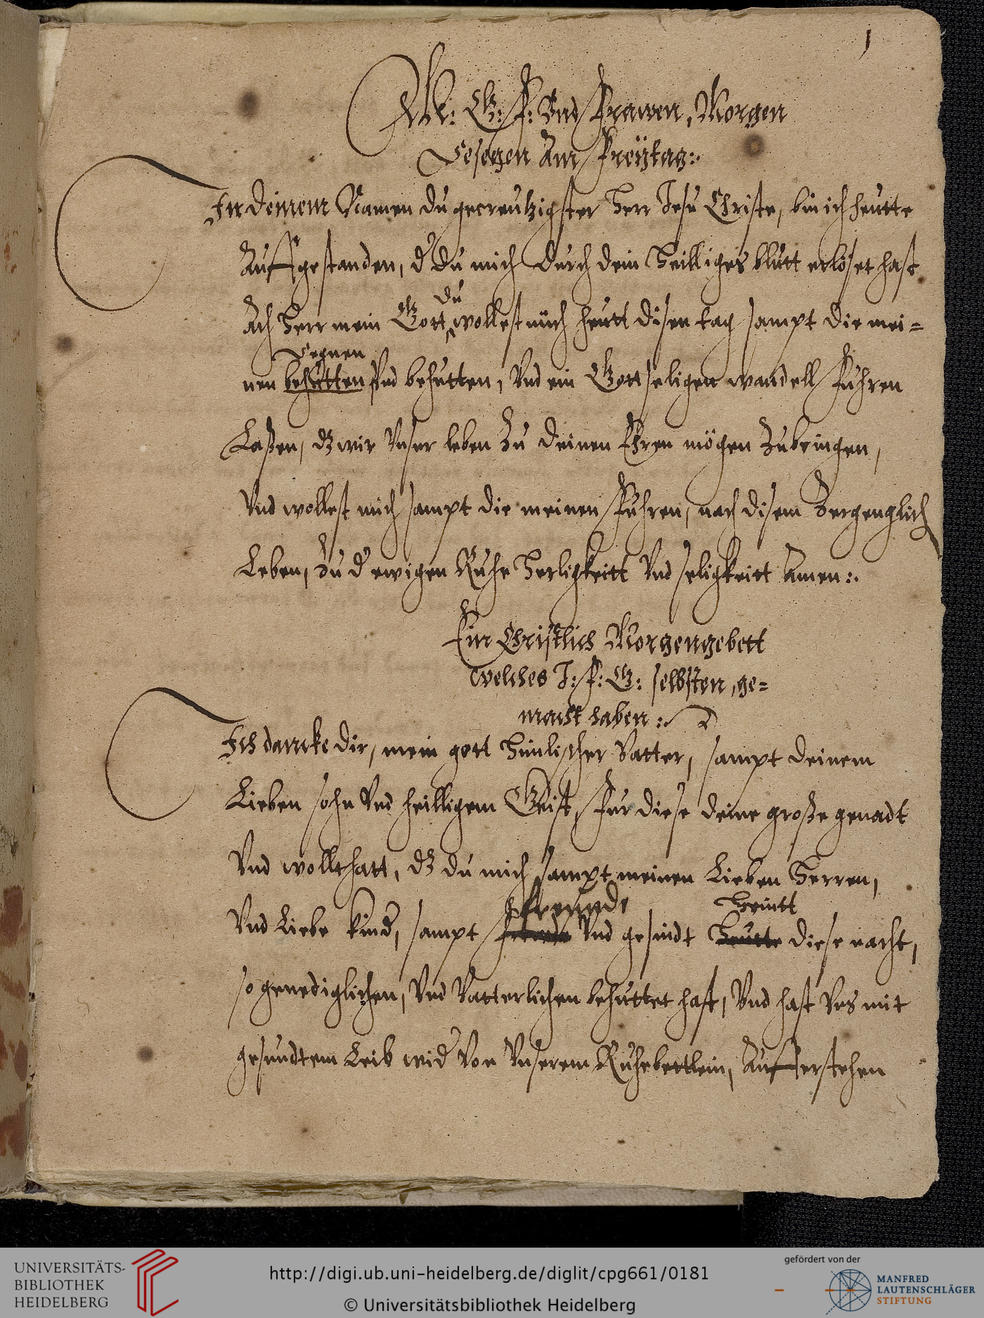 1
M: G: F: Vnd Frawen, Morgen
Gesegen Am Freÿtag:.
In deinem Namen du gecreutzigster Herr Jesu Christe, bin ich heutte
Auffgestanden, d du mich durch dein Heilliges blutt erlöset hast
du
Ach Herr mein Gott, wollest mich heutt disen tag sampt die mei=
Segnen
nen behutten Vnd behutten, Vnd ein Gottseligen wandell Fuhren
Laßen, dz wir Vnser leben Zu deinen Ehren mögen Zubringen,
Vnd wollest mich sampt die meinen Fuhren, nach disem Zergenglich
Leben, Zu d ewigen Ruhe Herligkeitt Vnd seligkeitt Amen:.
Ein Christlich Morgengebett
welches I: F: G: selbsten, ge=
macht haben:.
Ich dancke dir, mein gott Himlischer Vatter, sampt deinem
Lieben sohn Vnd heilligem Geist, Fur diese deine große genadt
Vnd wollthatt, dz du mich sampt meinen Lieben Herren,
Freundt Heintt
Vnd Liebe kind, sampt Vnd gesindt heutte diese nacht,
so genediglichen, Vnd Vatterlichen behuttet hast, Vnd hast Vns mit
gesundtem Leib wid Von Vnserem Ruhebettlein, Aufferstehen
UNIVERSITÄTS-
BIBLIOTHEK
HEIDELBERG
http://digi.ub.uni-heidelberg.de/diglit/cpg661/0181
© Universitätsbibliothek Heidelberg
gefördert von der
MANFRED
LAUTENSCHLÄGER
STIFTUNG